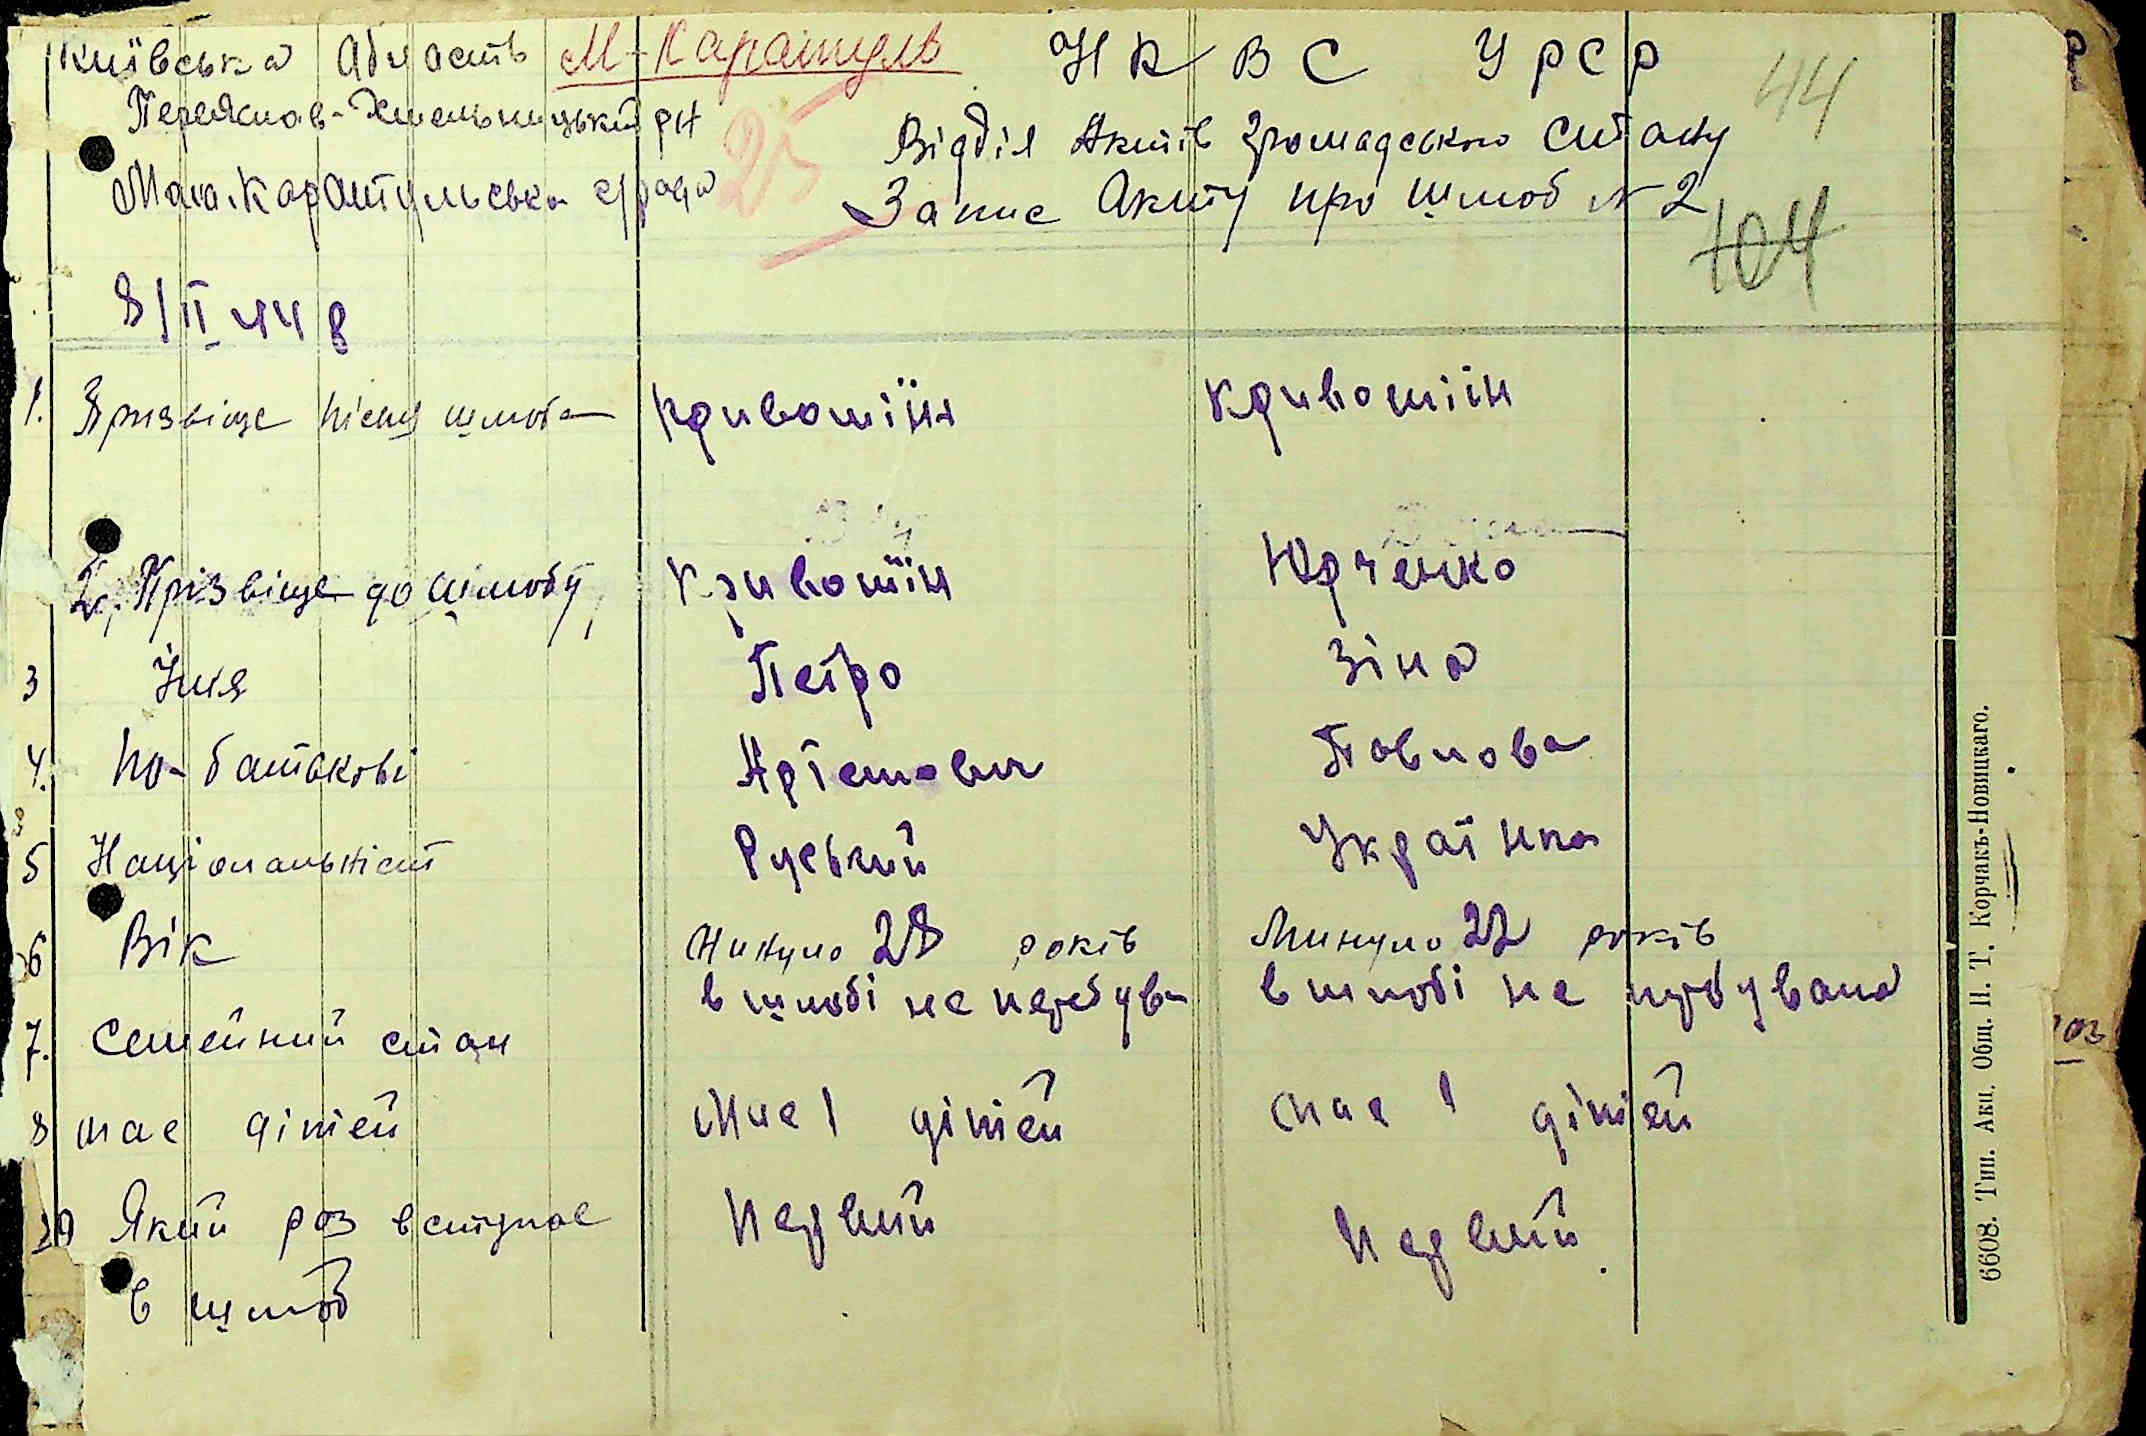 Київська Область М-Каратуль Н К В С У Р С Р 44
Переяслов-Хмельницький рн
25 Відділ Актів Громадського Стану
Мала.Каратульська с/рада
Запис Акту про шлюб № 2
104
8/II-44 в
1. Прізвіще після шлюба Кривошїін Кривошіін
2. Прізвіще до шлюбу, Кривошїін Юрченко
3 Імя Петро Зіна
4. по-батькові Артьомович Повлова
5 Національніст Руський Українка
6 Вік Минуло 28 років Минуло 22 років
7. Семейний стан в шлюбі не перебував в шлюбі не пербувала
8 має дітей має 1 дітей має 1 дітей
9 Який роз вступає Первий Первий
в шлюб
6608. Тип. Акц. Общ. Н. Т. Корчакъ-Новицкаго.
роз